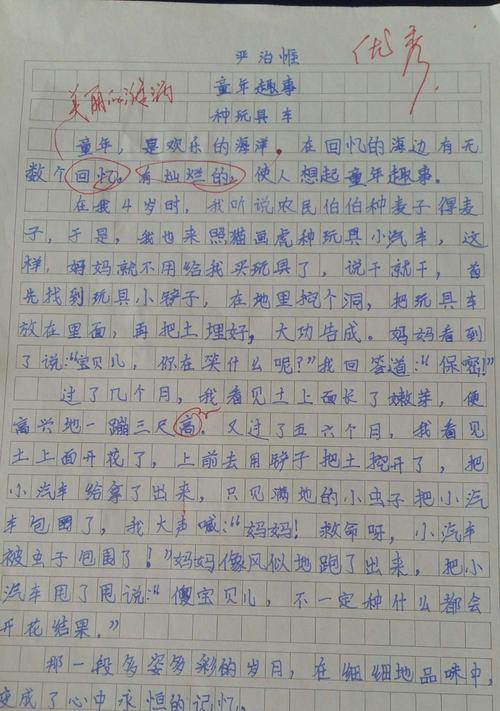 严治惟
优秀
童年趣事
美丽的
种玩具车
童年，是欢乐的海洋。在回忆的海边有无
数个回忆。有灿烂的，使人想起童年趣事。
在我4岁时，我听说农民伯伯种麦子得麦
子，于是，我也来照猫画虎种玩具小汽车，这
样，妈妈就不用给我买玩具了，说干就干，首
先找到玩具小铲子，在地里挖个洞，把玩具车
放在里面，再把土埋好，大功告成。妈妈看到
了说：“宝贝儿，你在笑什么呢？”我回答道：“保密！”
过了几个月，我看见土上面长了嫩芽，便
高兴地一蹦三尺高。又过了五六个月，我看见
土上面开花了，上前去用铲子把土挖开了，把
小汽车给拿了出来，只见满地的小虫子把小汽
车包围了，我大声喊：“妈妈！救命呀，小汽车
被虫子包围了！”妈妈像风似地跑了出来，把小
汽车甩了甩说：“傻宝贝儿，不一定种什么都会
开花结果。”
那一段多姿多彩的岁月，在细细地品味中，
变成了心中永恒的记忆。